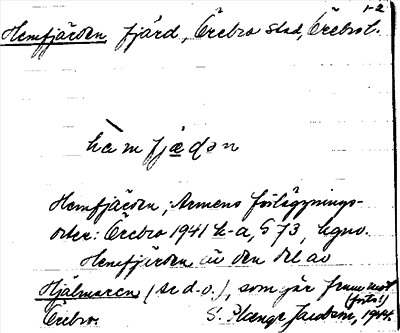 1-2
Hemfjärden fjärd, Örebro stad, Örebro l.
hà m fjæḍən
Hemfjärden, Armens förläggnings-
orter: Örebro 1941 k-a, § 73,
Hemfjärden är den del av
Hjälmaren (se d.o.), som går fram mot
(foto!)
Örebro. S. Plænge Jacobson, 1944.